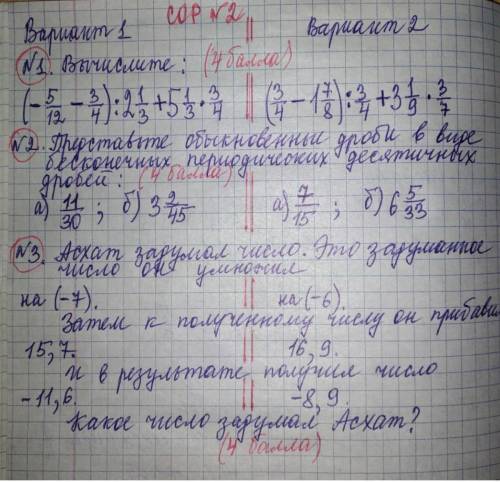 СОР №2
Вариант 1 Вариант 2
№1. Вычислите: (4 балла)
(-5/12 - 3/4) : 2 1/3 + 5 1/3 · 3/4 (3/4 - 1 7/8) : 3/4 + 3 1/9 · 3/7
№2. Представьте обыкновенные дроби в виде
бесконечных периодических десятичных
дробей: (4 балла)
а) 11/30 ; б) 3 2/45 а) 7/15 ; б) 6 5/33
№3. Асхат задумал число. Это задуманное
число он умножил
на (-7). на (-6).
Затем к полученному числу он прибавил
15,7. 16,9.
И в результате получил число
-11,6. -8,9.
Какое число задумал Асхат?
(4 балла)